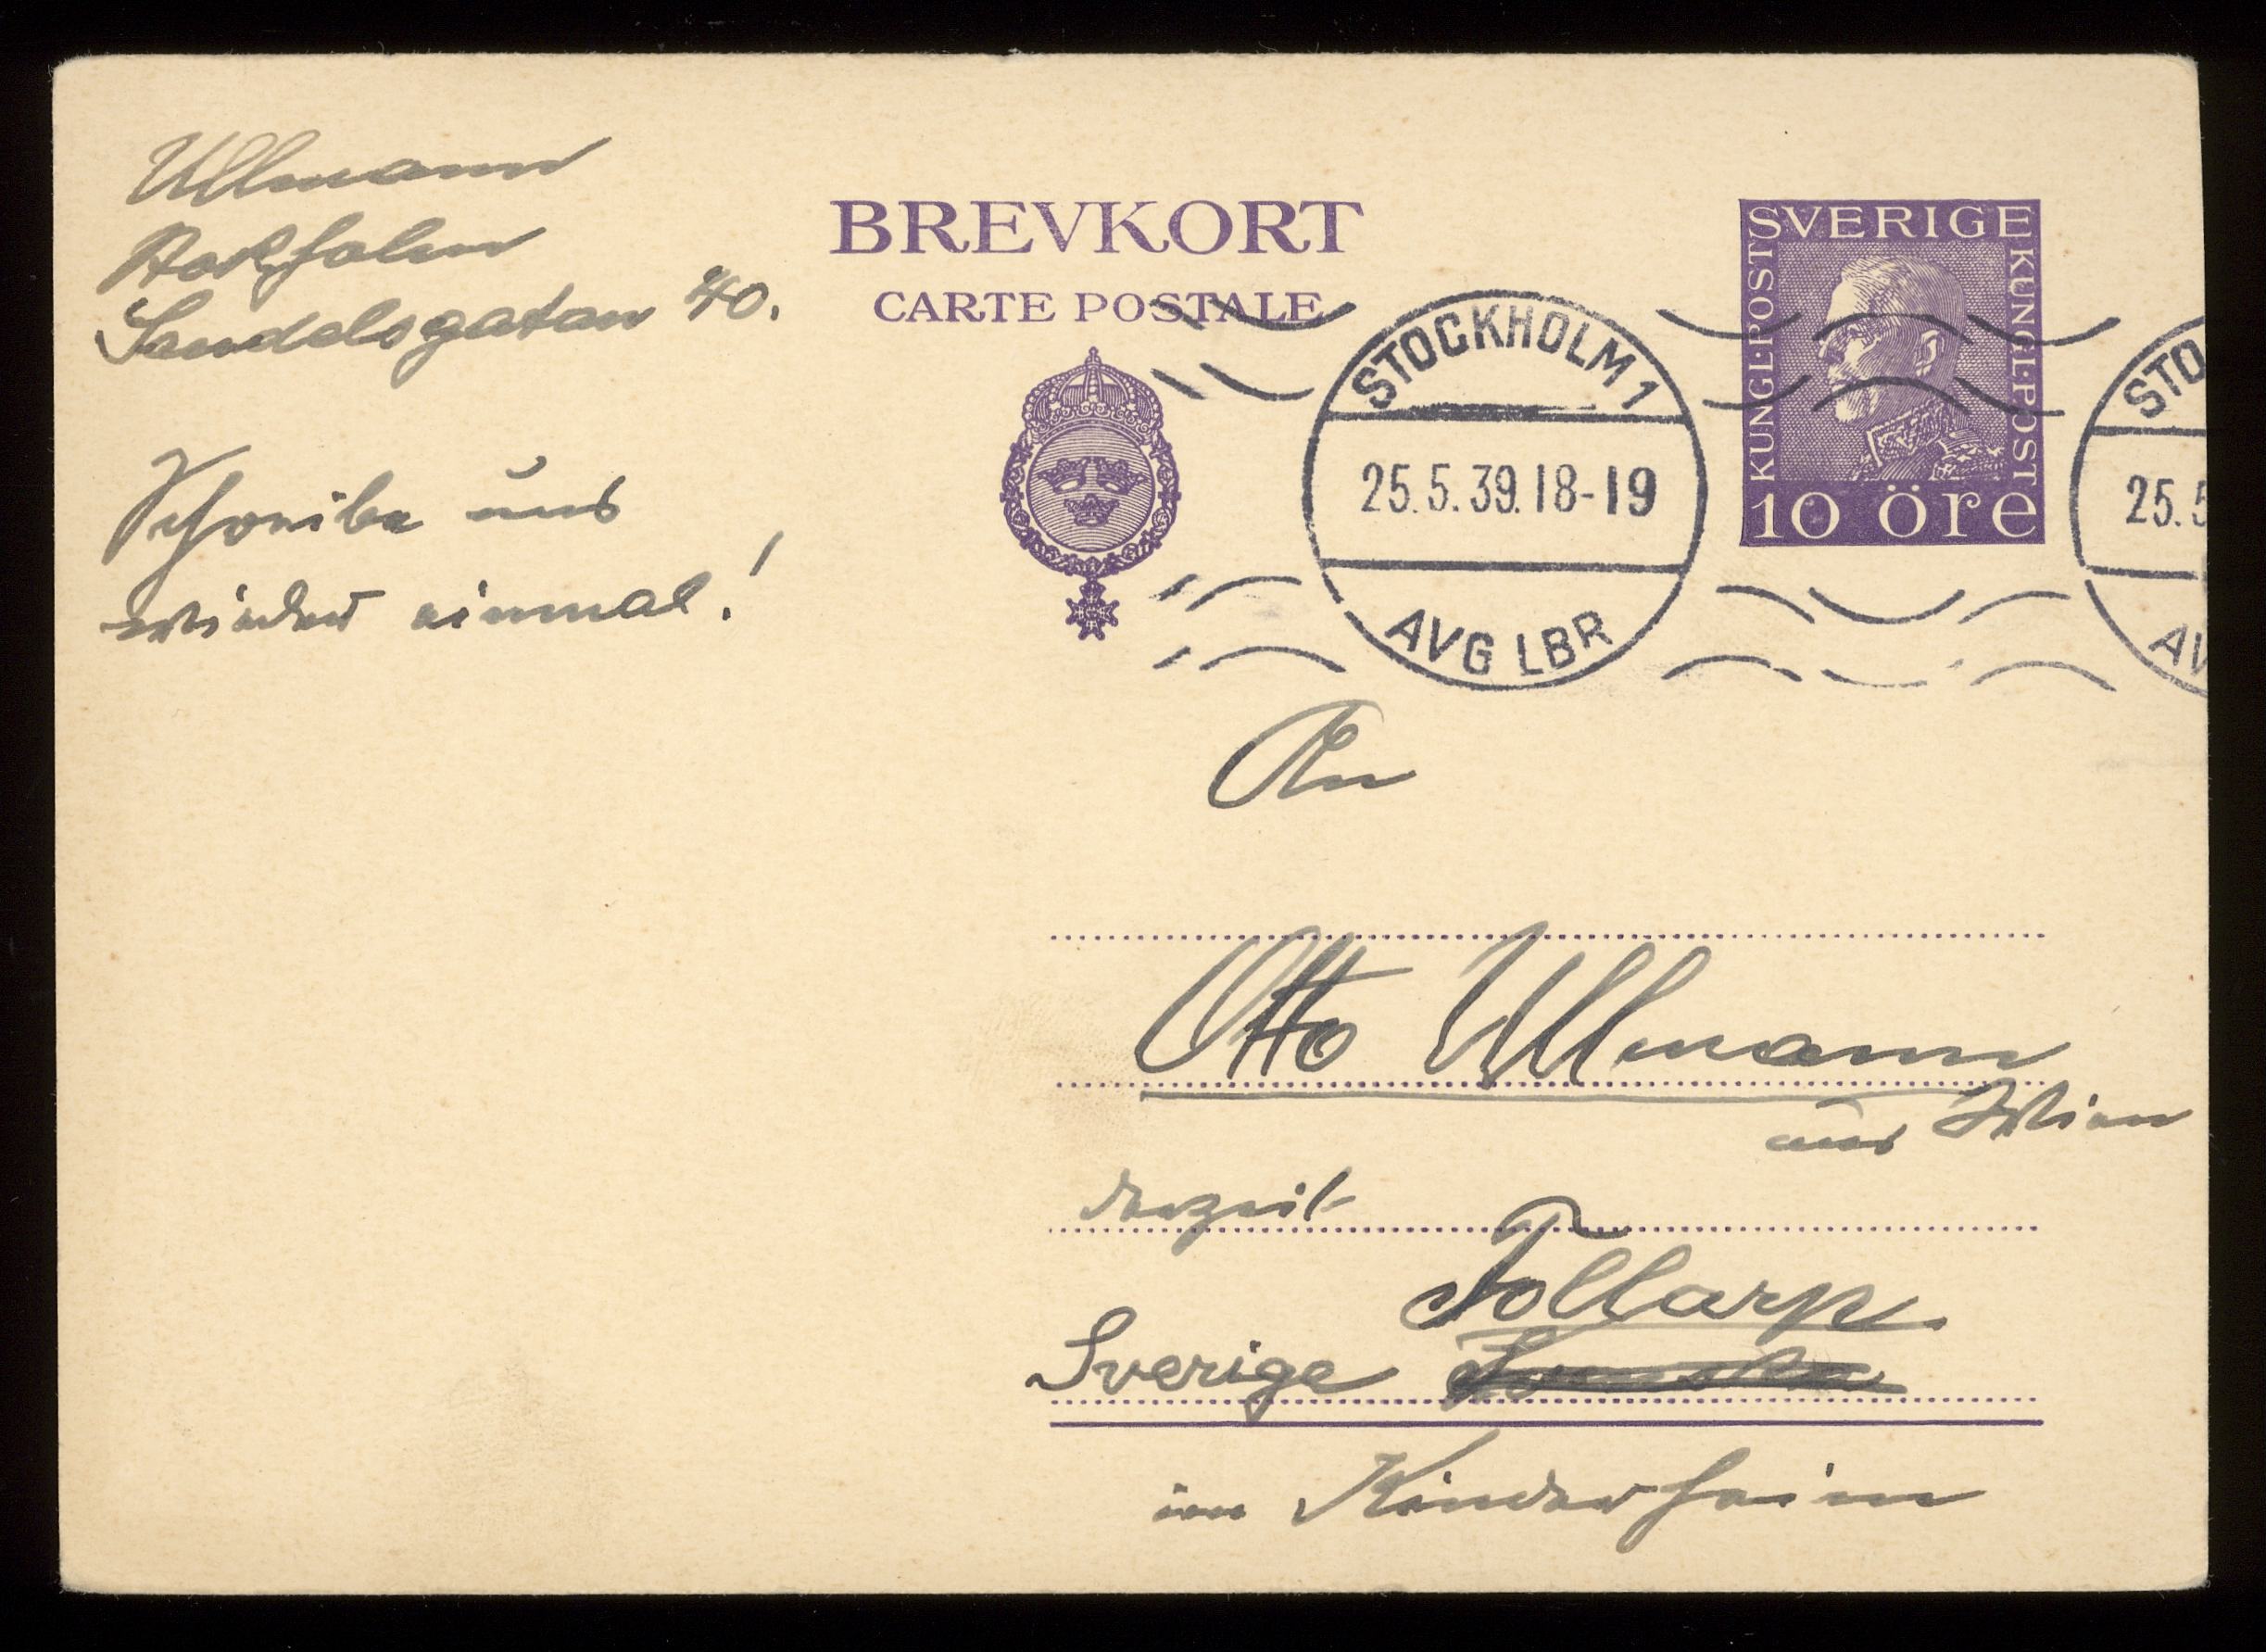 Ullmann
Stockholm
Sandelsgatan 40.
Schreibe uns
wieder einmal!
BREVKORT
CARTE POSTALE
SVERIGE
KUNGL·POST
KUNGL·POST
10 öre
STOCKHOLM 1
25.5.39.18-19
AVG LBR
STO
25.5
AV
An
Otto Ullmann
aus Wien
derzeit
Tollarp.
Sverige
im Kinderheim